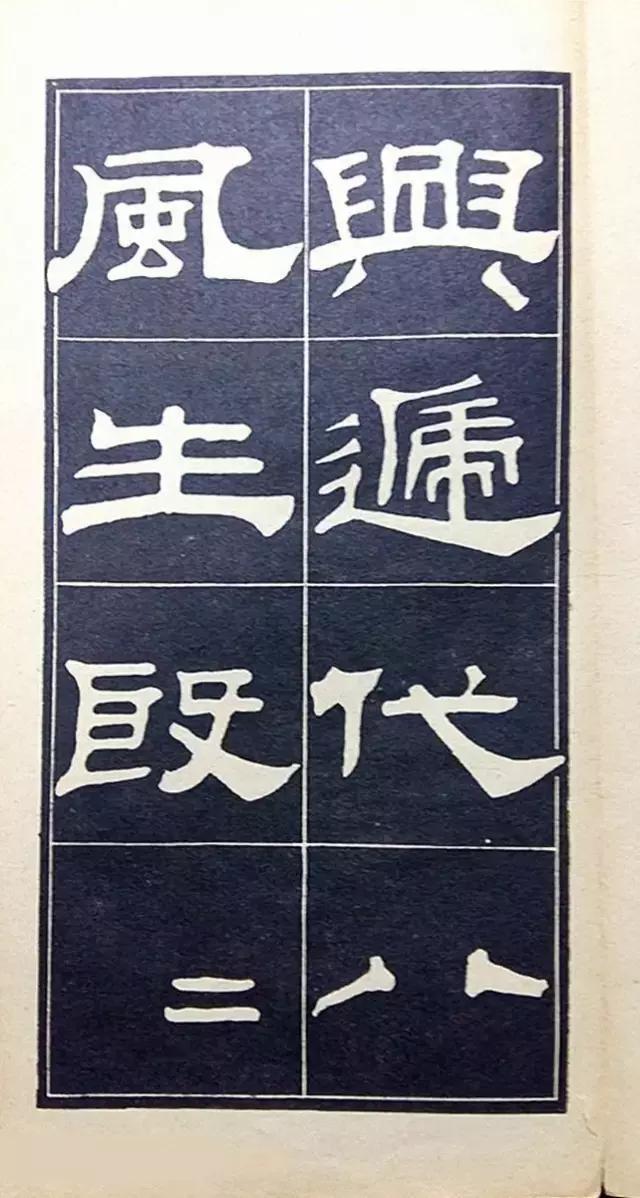 興遞代八
風生殷二